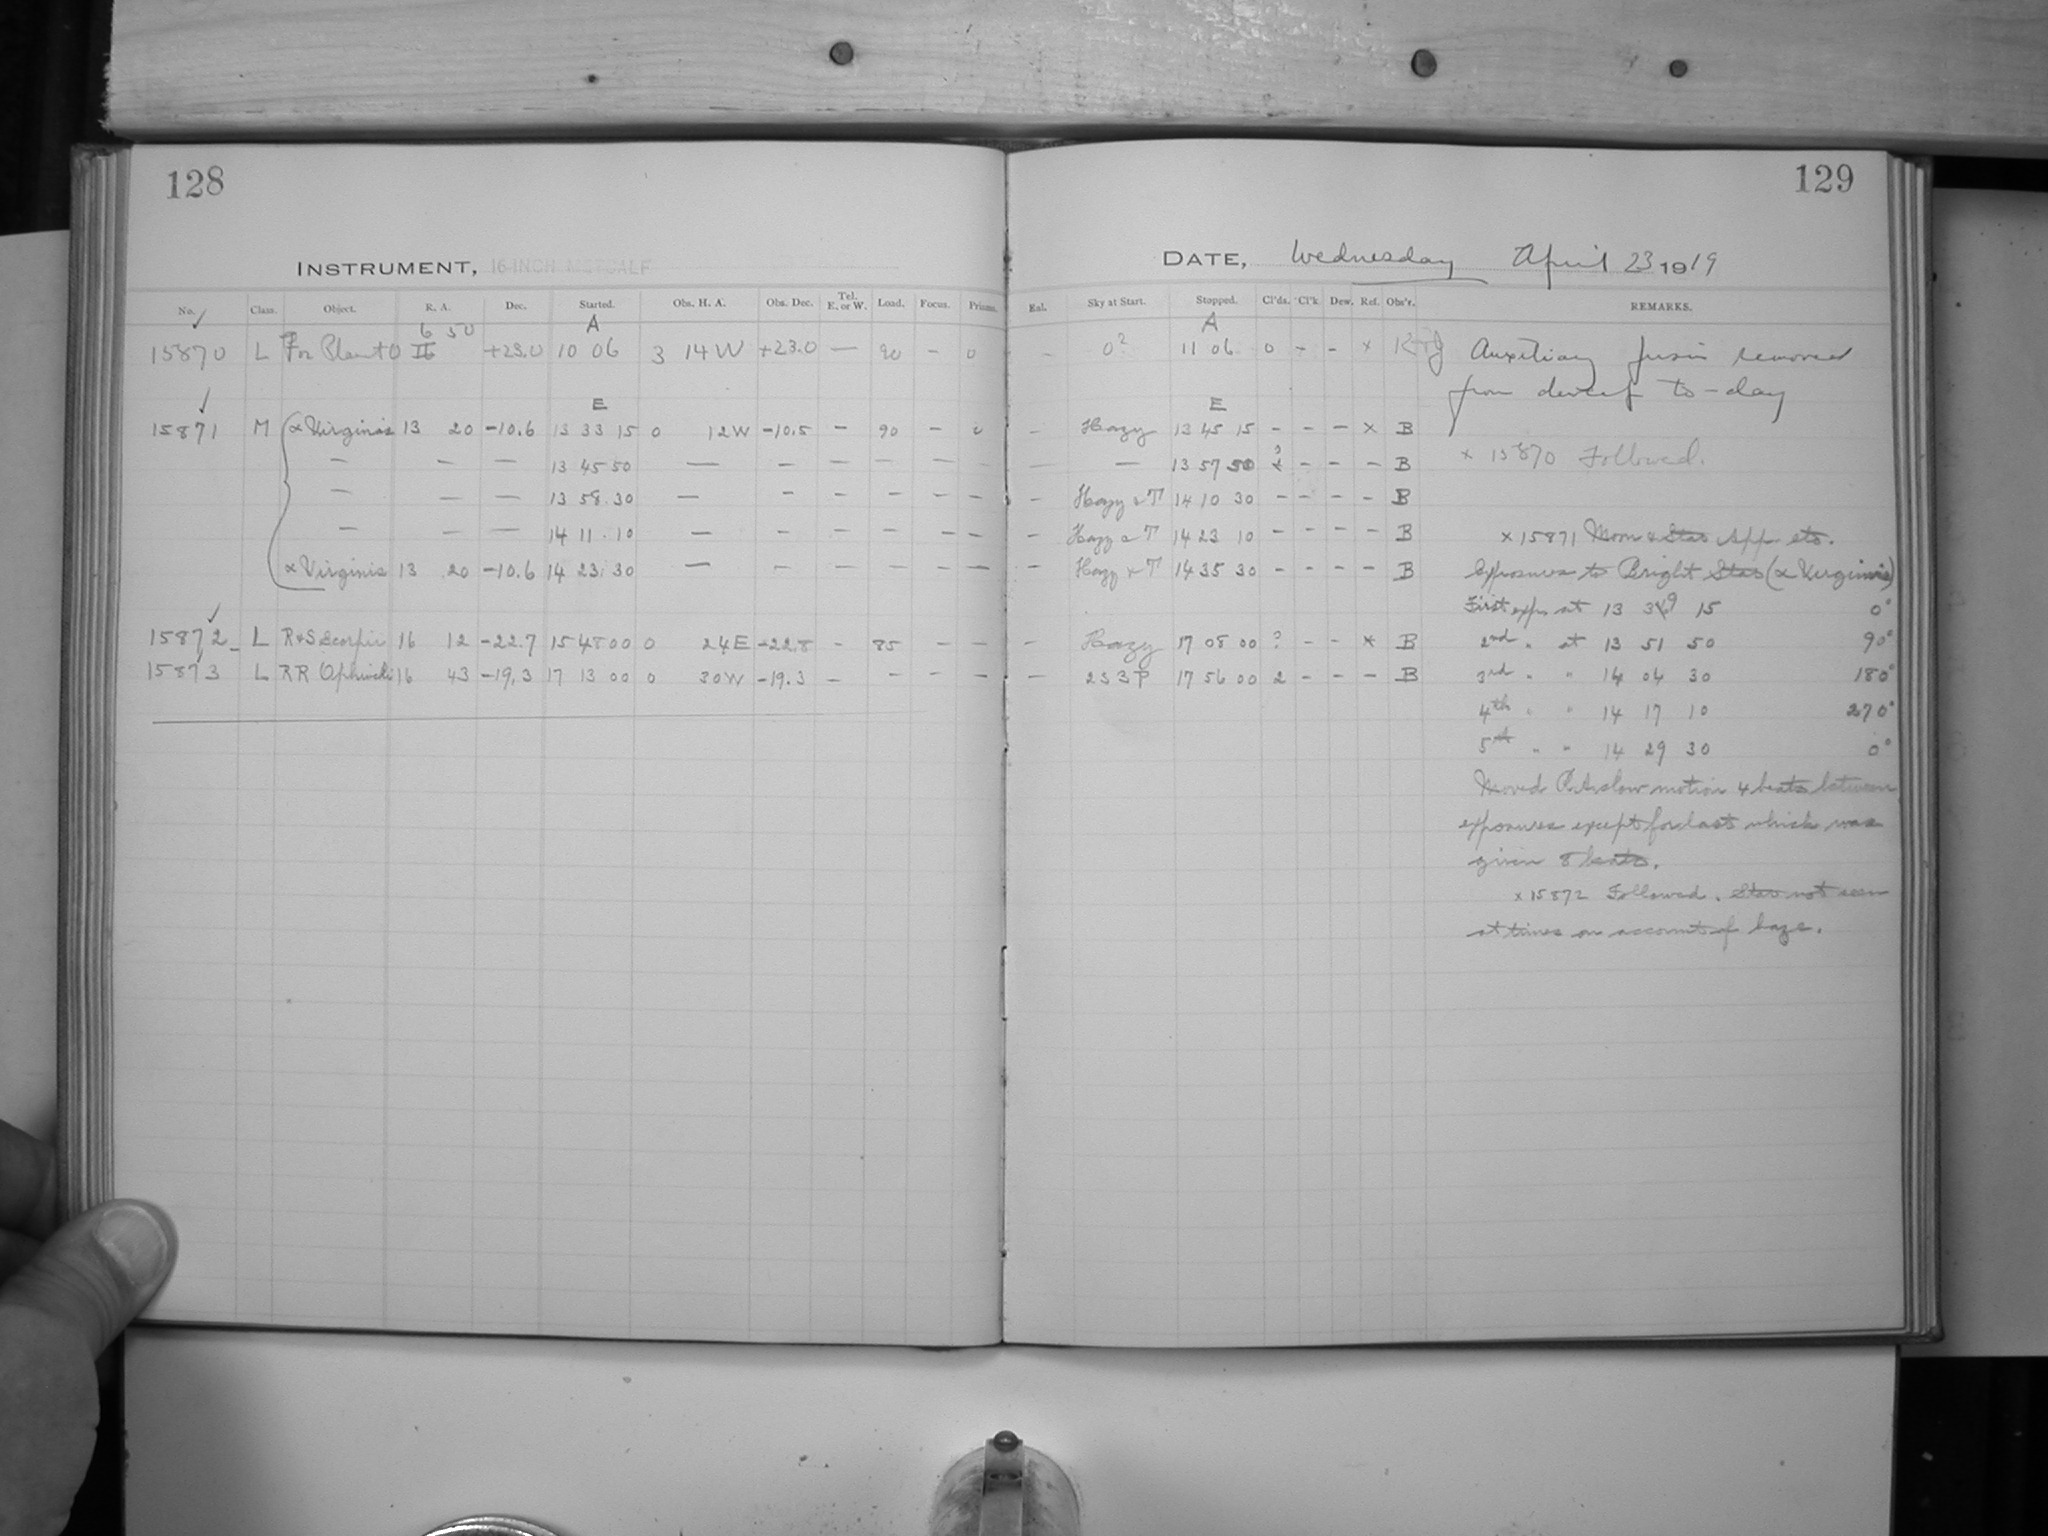 128
INSTRUMENT, 16-INCH METCALF
No. Class. Object. R. A. Dec. Started. Obs. H. A. Obs. Dec. Tel. E. or W. Load. Focus. Prisms.
6 50 A
15870 L For +23.0 10 06 3 14 W +23.0 — 90 - 0
E
15871 M α Virginis 13 20 -10.6 13 33 15 0 12W -10.5 - 90 -
— - — 13 45 50 — - - - - -
— — — 13 58 30 — - - - - -
— — — 14 11 10 — - - - - -
α Virginis 13 20 -10.6 14 23 30 — - - - - -
15872 L R+S Scorpii 16 12 -22.7 15 48 00 0 24E -22.8 - 85 - -
15873 L RR Ophiuchi 16 43 -19.3 17 13 00 0 30W -19.3 - - - -
129
DATE, Wednesday April 23 1919
Enl. Sky at Start. Stopped. Cl'ds. Cl'k Dew. Ref. Obs'r. REMARKS.
A
- 0² 11 06 0 - - × Auxiliary removed
from to-day
E
- Hazy 13 45 15 - - - × B
× 15870 Followed.
— — 13 57 50 - - - B
- Hazy & T 14 10 30 - - - - B
- Hazy & T 14 23 10 - - - - B
× 15871 Moon & Star App etc.
- Hazy & T 14 35 30 - - - - B
Exposures to Bright Star (α Virginis)
First exp. at 13 39 15 0°
- Hazy 17 08 00 ? - - × B
2nd " at 13 51 50 90°
- 2S3P 17 56 00 2 - - - B
3rd " " 14 04 30 180°
4th " " 14 17 10 270°
5th " " 14 29 30 0°
Moved slow motion 4 beats between
exposures except for last which was
given 8 beats.
× 15872 Followed. Star not seen
at times on account of haze.